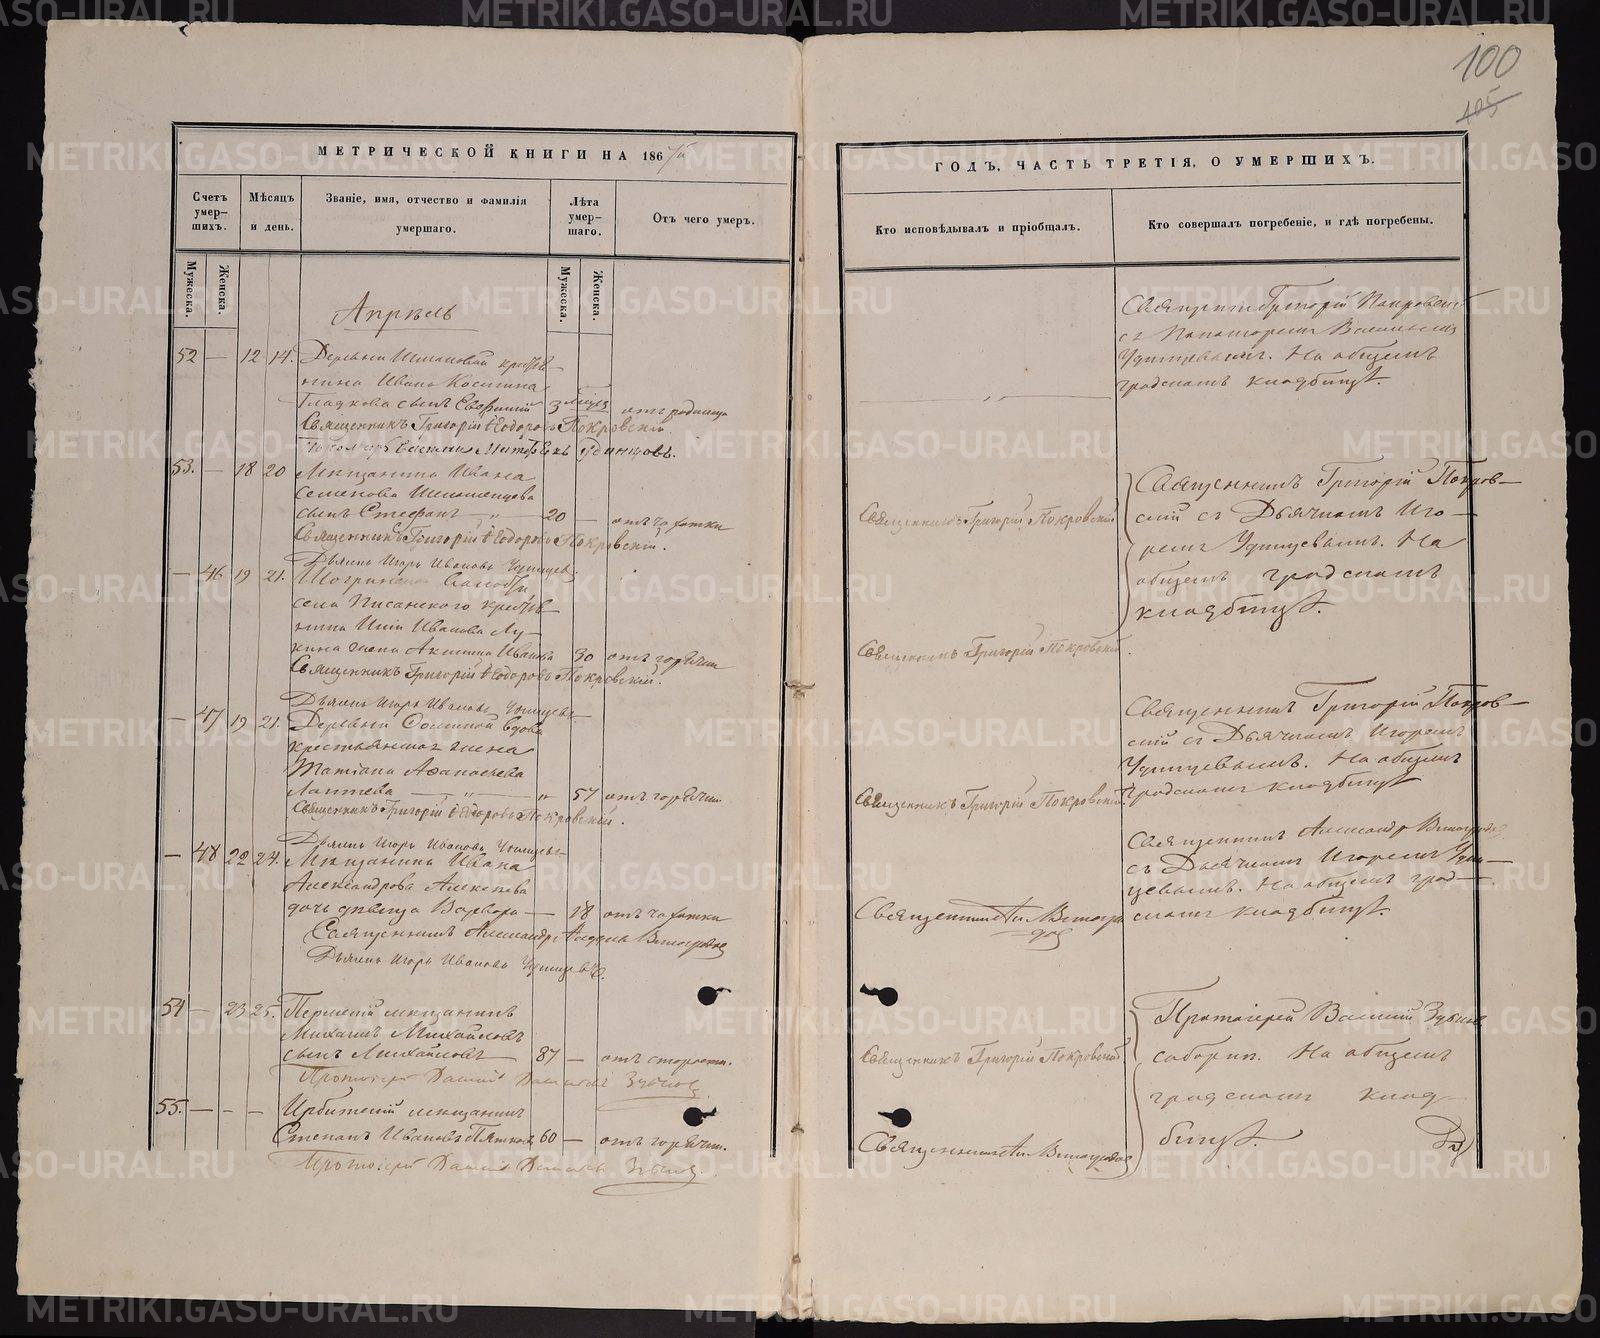 100
105
МЕТРИЧЕСКОЙ КНИГИ НА 186
Счетъ умер-шихъ.
Мѣсяцъ и день.
Званіе, имя, отчество и фамилія умершаго.
Лѣта умер-шаго.
Отъ чего умеръ.
Мужеска.
Женска.
Мужеска.
Женска.
Апрѣль
52 — 12 14. Деревни крестья-
нина Ивана Косьмина
Гладкова сынъ Евфимій 3 отъ родимца
Священникъ Григорій Ѳеодоровъ Покровскій.
Удинцовъ.
53. — 18 20 Мѣщанина Ивана
Семенова
сынъ Стефанъ — „ — 20 — отъ чахотки
Священникъ Григорій Ѳеодоровъ Покровскій.
Дьячекъ Игорь Ивановъ Удинцевъ.
— 46 19 21. Шогринской
села Писанского крестья-
нина Иванова Лу-
кина жена Акилина Иванова 30 отъ горячки
Священникъ Григорій Ѳеодоровъ Покровскій.
Дьячекъ Игорь Ивановъ Удинцевъ.
— 47 19 21. Деревни вдова
крестьянская жена
Татіана Аѳанасьева
Лаптева — „ — „ 57 отъ горячки
Священникъ Григорій Ѳеодоровъ Покровскій.
Дьячекъ Игорь Ивановъ Удинцевъ
— 48 22 24. Мѣщанина Ивана
Александрова Алексѣева
дочь дѣвица Варвара — 18 отъ чахотки
Священникъ Александръ Виноградовъ
Дьячекъ Игорь Ивановъ Удинцевъ.
54 — 23 25. Пермскій мѣщанинъ
Михаилъ Михайловъ
сынъ Михайловъ — 87 — отъ старости.
Протоіерей Зубковъ
55. — - — Ирбитскій мѣщанинъ
Степанъ Ивановъ Пятковъ 60 — отъ горячки.
Протоіерей Зубковъ
ГОДЪ, ЧАСТЬ ТРЕТІЯ, О УМЕРШИХЪ.
Кто исповѣдывалъ и пріобщалъ.
Кто совершалъ погребеніе, и гдѣ погребены.
Священникъ Григорій Покровскій
съ Пономаремъ Васильемъ
Удинцевымъ. На общемъ
градскомъ кладбищѣ.
Священникъ Григорій Покровскій
Священникъ Григорій Покров-
скій съ Дьячкомъ Иго-
ремъ Удинцевымъ. На
общемъ градскомъ
кладбищѣ.
Священникъ Григорій Покровскій.
Священникъ Григорій Покров-
скій съ Дьячкомъ Игоремъ
Удинцевымъ. На общемъ
градскомъ кладбищѣ
Священникъ Григорій Покровскій.
Священникъ Александръ Виноградовъ
съ Дьячкомъ Игоремъ Удин-
цевымъ. На общемъ град-
скомъ кладбищѣ.
Священникъ Ал. Виногра-
довъ
Протоіерей Василій Зубковъ
соборнѣ. На общемъ
градскомъ клад-
бищѣ.
Священникъ Григорій Покровскій.
Священникъ Ал. Виноградовъ
METRIKI.GASO-URAL.RU